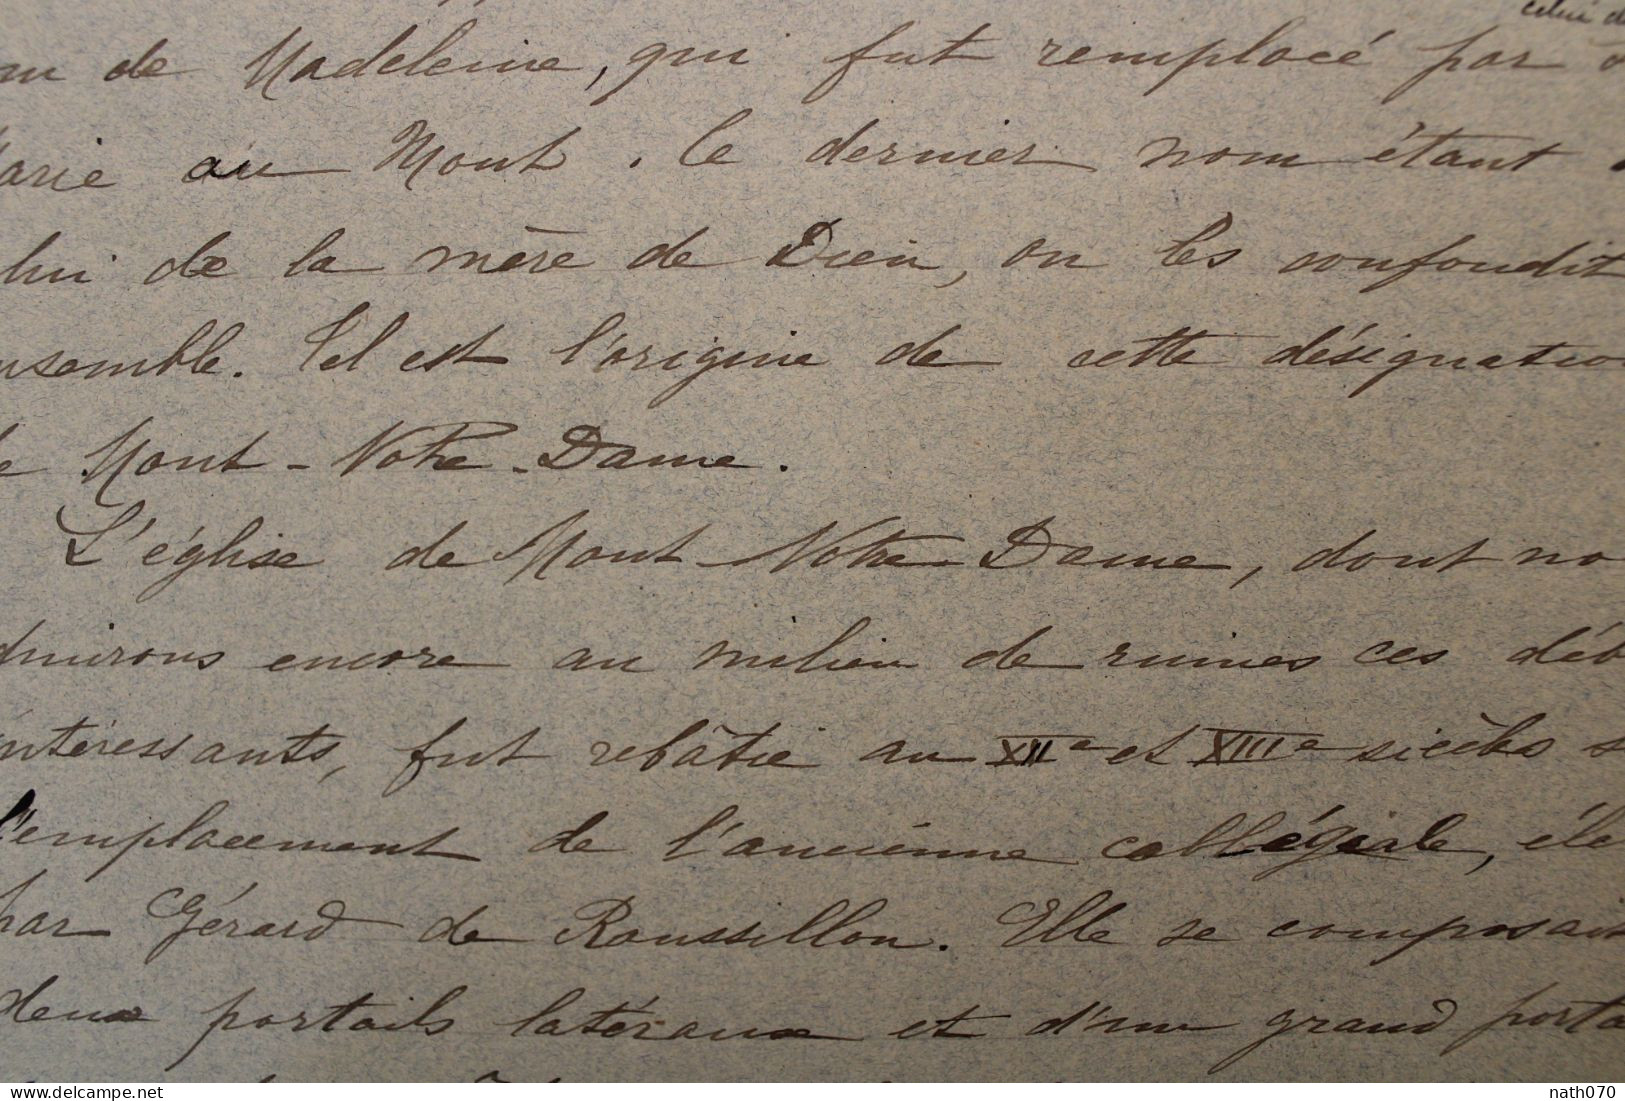 celui de
de Madeleine, qui fut remplacé par
Marie au Mont. Ce dernier nom étant
lui de la mère de Dieu, on les confondit
nsemble. Tel est l'origine de cette désignation
de Mont-Notre-Dame.
L'église de Mont-Notre-Dame, dont no
dmirons encore au milieu de ruines ces déb
intéressants, fut rebâtie au XIIe et XIIIe siècles s
l'emplacement de l'ancienne collégiale, éle
par Gérard de Roussillon. Elle se composait
deux portails latéraux et d'un grand porta
nath070